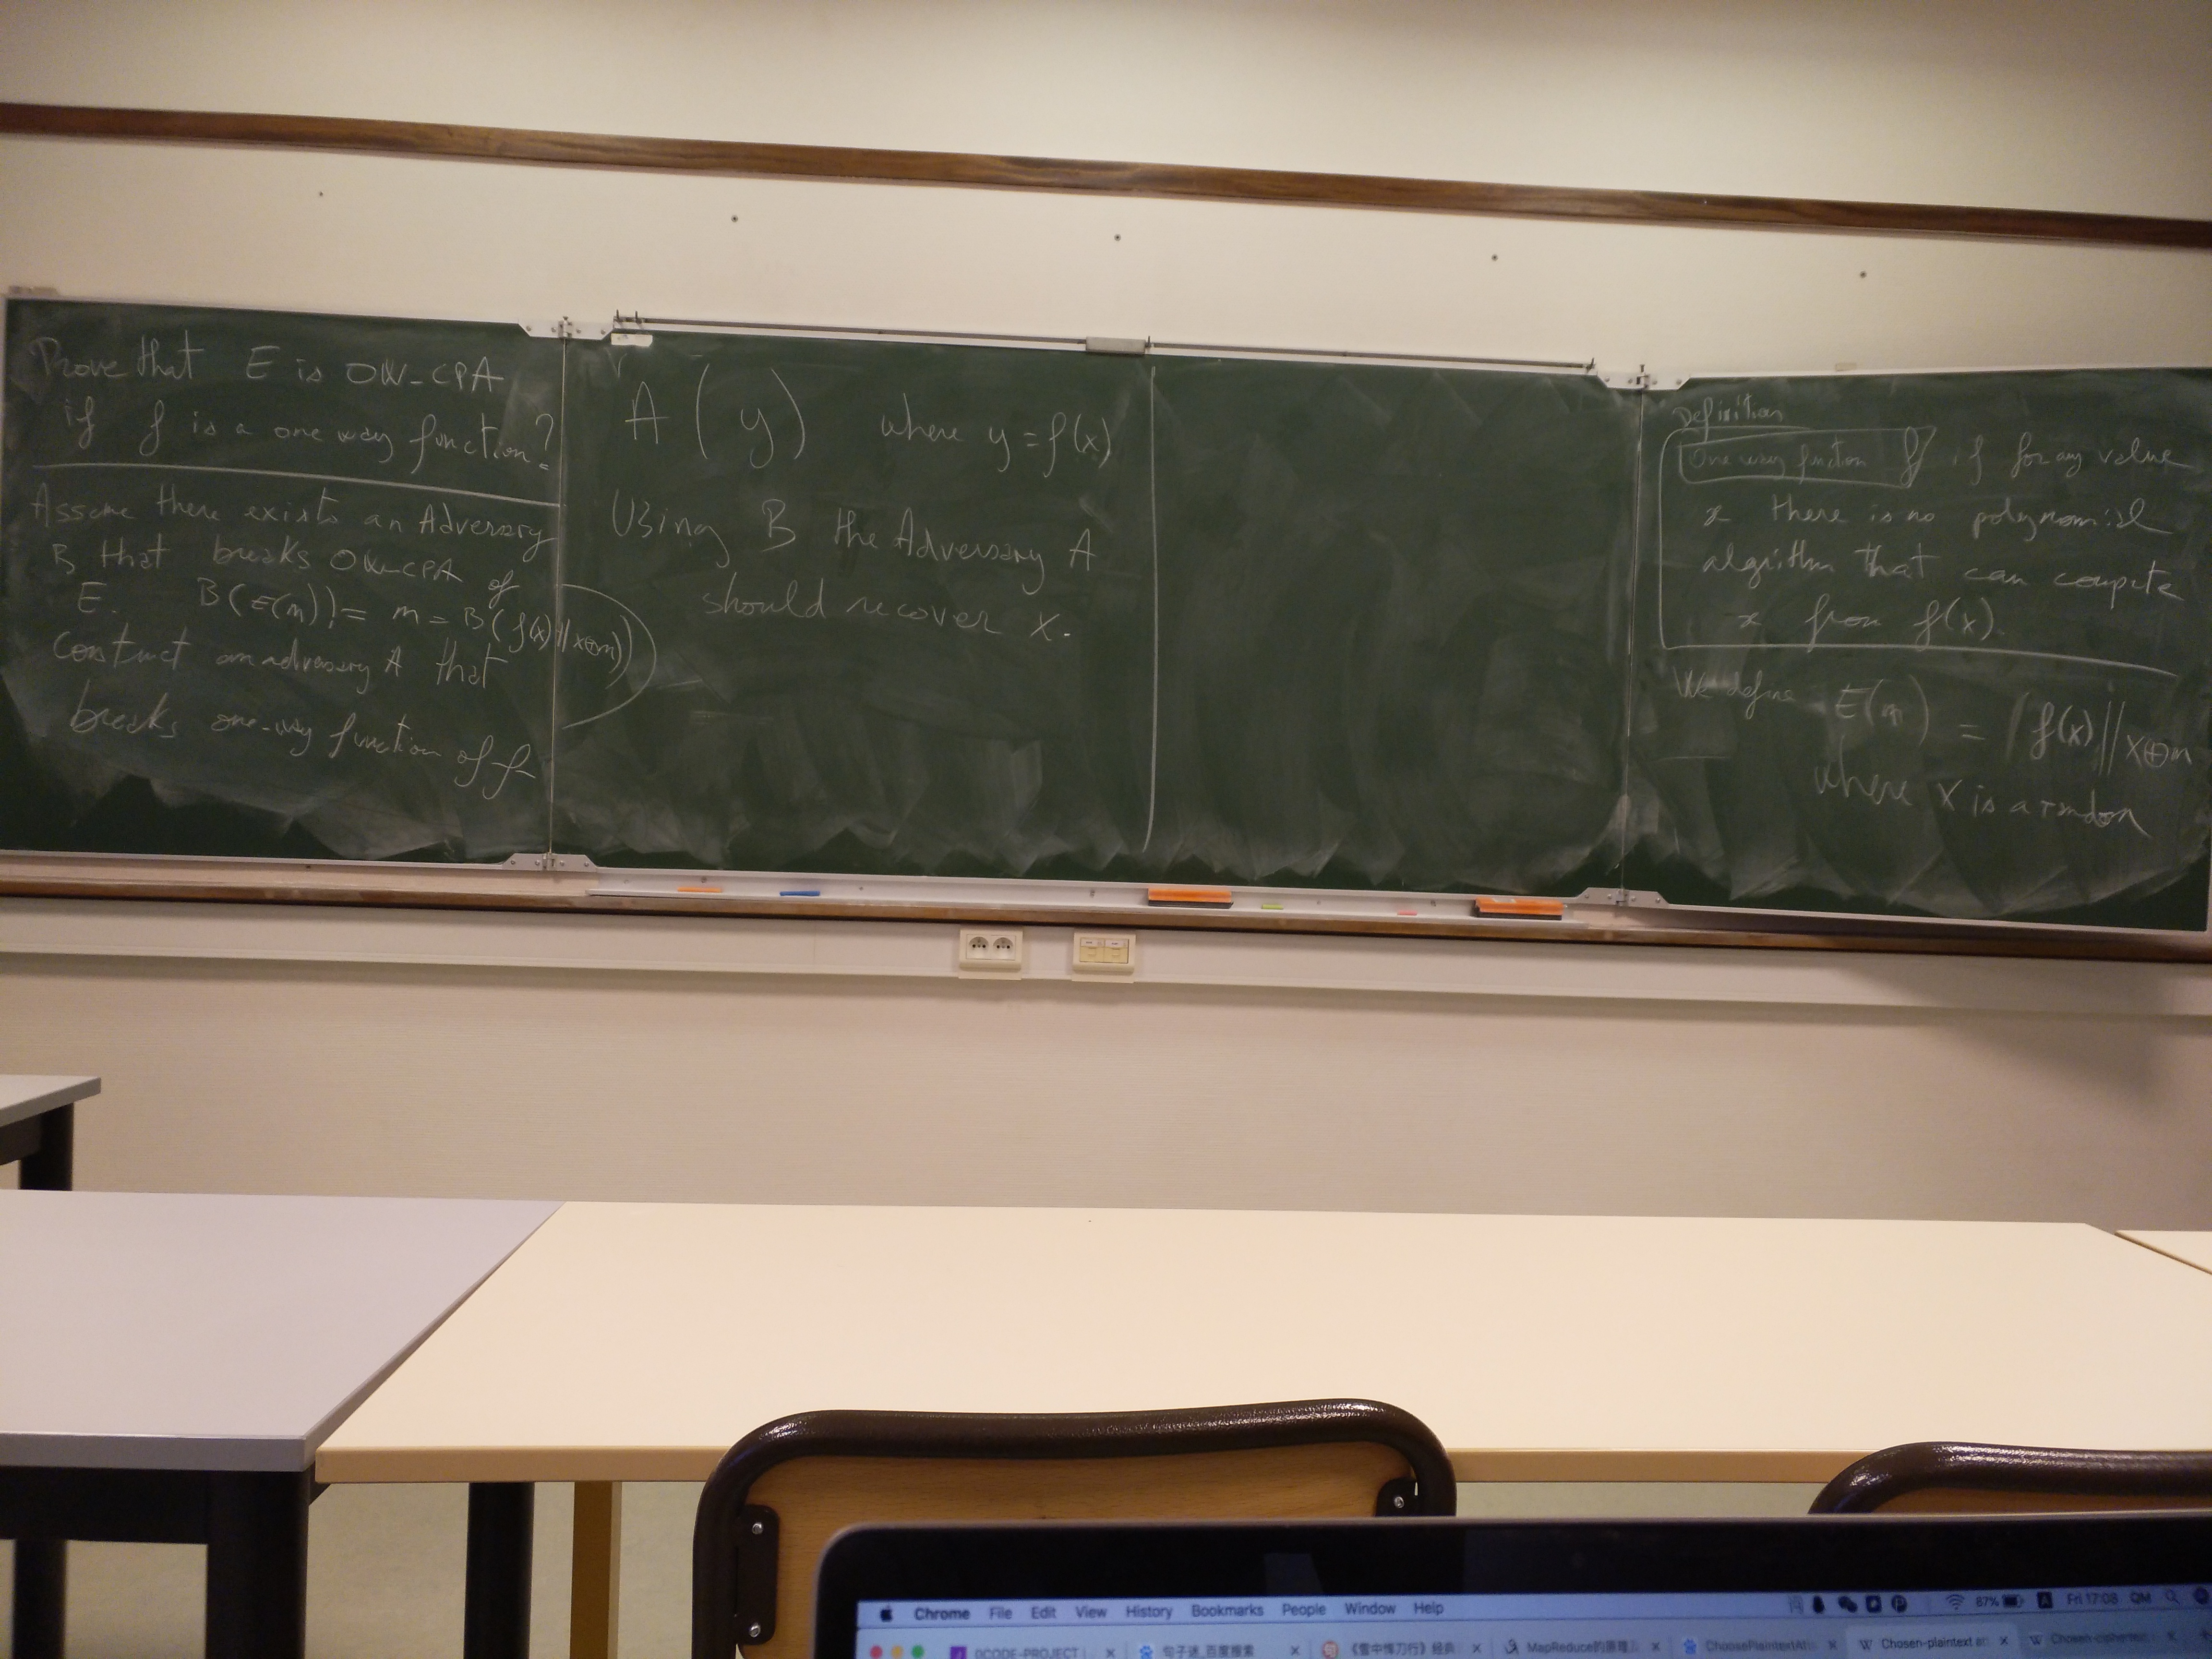 Prove that E is OW-CPA
if f is a one way function?
Assume there exists an Adversary
B that breaks OW-CPA of
E. B(E(m)) = m = B(f(x)||x⊕m))
Construct an adversary A that
breaks one-way function of f
A(y) where y = f(x)
Using B the Adversary A
should recover x.
Definition
One way function f if for any value
x there is no polynomial
algorithm that can compute
x from f(x).
We define E(m) = (f(x)||x⊕m
where x is a random
Chrome File Edit View History Bookmarks People Window Help
87% Fri 17:08 QM
句子迷_百度搜索
《雪中悍刀行》经典
MapReduce的原理
ChoosePlaintextAt
Chosen-plaintext at
Chosen-ciphertext